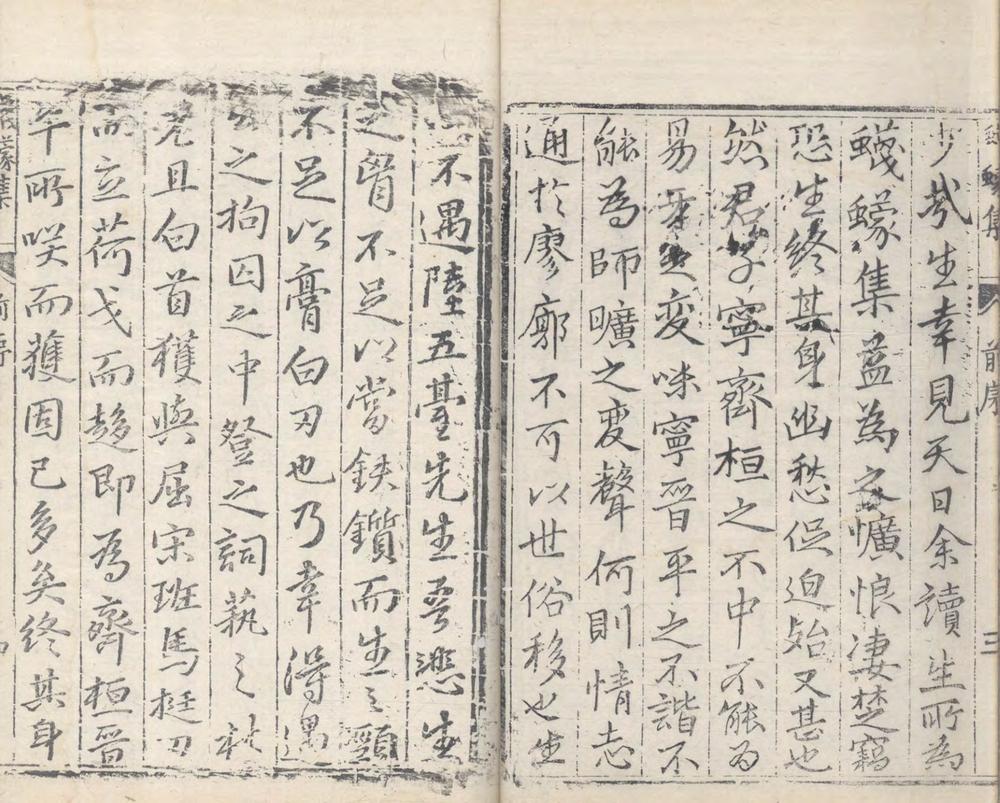 蠛蠓集 前序 三
少哉生幸見天日余讀生所為
蠛蠓集益為之懭悢淒楚竊
恐生終其身幽愁促迫始又甚也
然君子寧齊桓之不中不能為
易牙之變味寧晉平之不諧不
能為師曠之變聲何則情志
通於廖廓不可以世俗移也生
不遇陸五臺先生雩悲生
之胷不足以當鈇鑕而生之頸
不足以膏白刃也乃幸得遇
之拘囚之中發之詞蓺之林
老且白首獲與屈宋班馬挺刃
而立荷戈而趍即為齊桓晉
平所唉而獲固已多矣終其身
蠛蠓集 前序